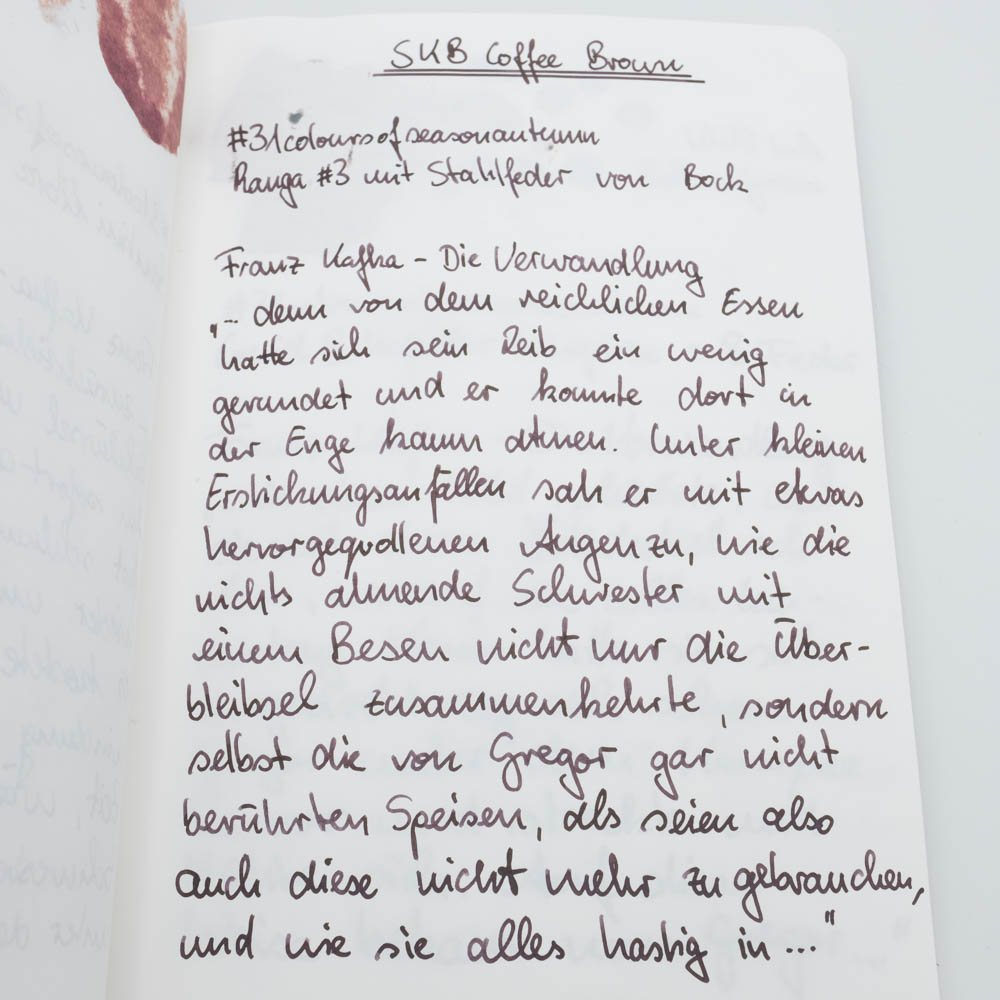 SKB Coffee Brown
#31coloursofseasonautumn
Ranga #3 mit Stahlfeder von Bock
Franz Kafka – Die Verwandlung
„... denn von dem reichlichen Essen
hatte sich sein Leib ein wenig
gerundet und er konnte dort in
der Enge kaum atmen. Unter kleinen
Erstickungsanfällen sah er mit etwas
hervorgequollenen Augen zu, wie die
nichts ahnende Schwester mit
einem Besen nicht nur die Über-
bleibsel zusammenkehrte, sondern
selbst die von Gregor gar nicht
berührten Speisen, als seien also
auch diese nicht mehr zu gebrauchen,
und wie sie alles hastig in ..."